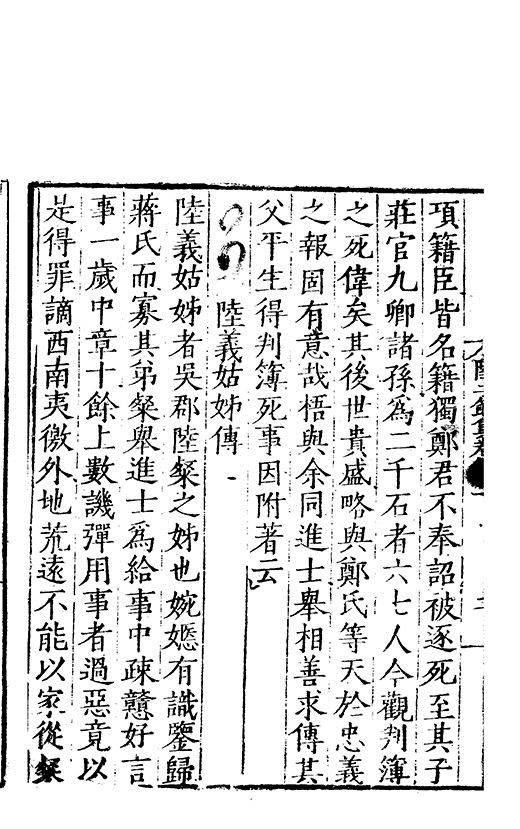 項籍臣皆名籍獨鄭君不奉詔被逐死至其子
莊官九卿諸孫爲二千石者六七人今觀判簿
之死偉矣其後世貴盛略與鄭氏等天於忠義
之報固有意哉梧與余同進士舉相善求傳其
父平生得判簿死事因附著云
陸義姑姊傳
陸義姑姊者吳郡陸粲之姊也婉嫕有識鑒歸
蔣氏而寡其弟粲舉進士爲給事中疎戇好言
事一歲中章十餘上數譏彈用事者過惡竟以
是得罪謫西南夷徼外地荒遠不能以家從粲